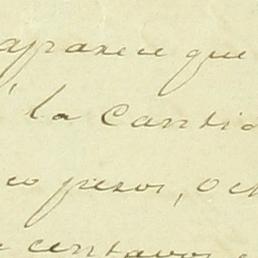 aparece que
la cantid
co pesos, och
centavos